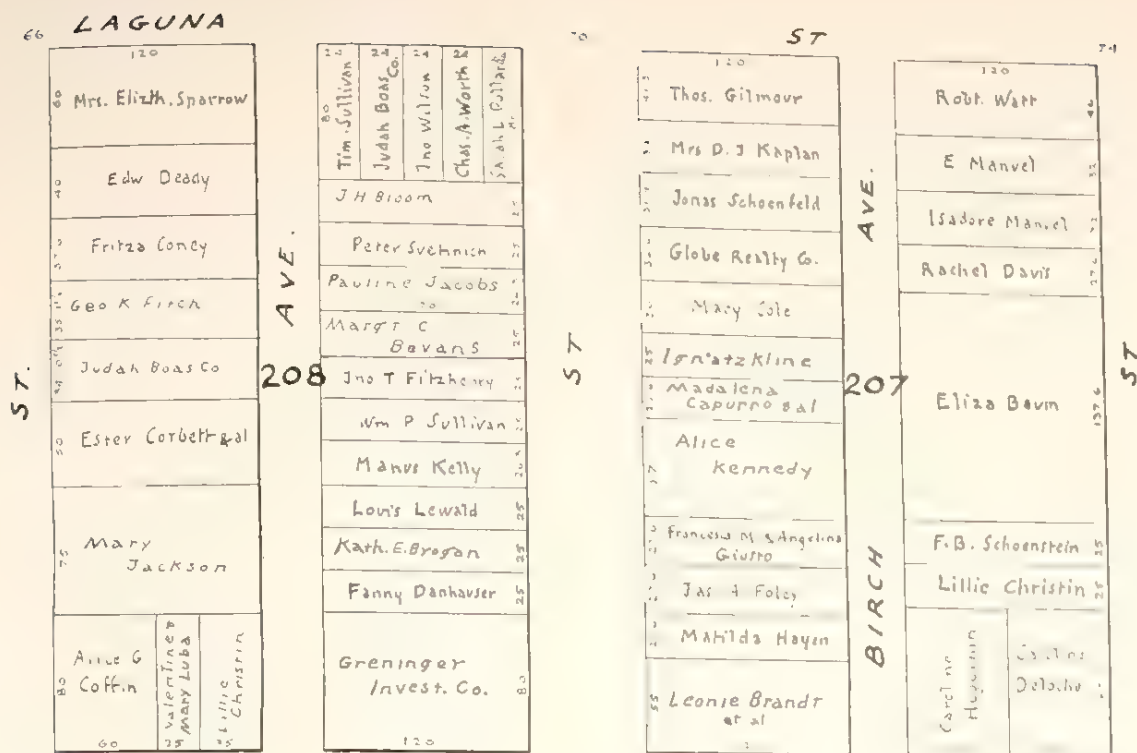 LAGUNA
ST
66
70
74
120
60 Mrs. Elizth. Sparrow
40 Edw Deady
Fritza Coney
Geo K Fitch
35
Judah Boas Co
50 Ester Corbett & al
75 Mary
Jackson
80 Alice G
Coffin
60
Valentine &
Mary Luba
25
Lillie
Christin
25
ST.
AVE.
208
80
Tim. Sullivan
24
Judah Boas
Co.
24
Jno Wilson
24
Chas. A. Worth
J H Bloom 25
Peter Svehnich 25
Pauline Jacobs
Margt C
Bevans 25
Jno T Fitzhenry
Wm P Sullivan
Manus Kelly
Louis Lewald 25
Kath. E. Brogan 25
Fanny Danhauser 25
Greninger
Invest. Co. 80
120
ST
120
Thos. Gilmour
Mrs D. J Kaplan
Jonas Schoenfeld
Globe Realty Co.
Mary Cole
25 Ignatz Kline
Madalena
Capurro & al
Alice
Kennedy
Francesco M & Angelina
Giusto
Jas A Foley
Matilda Hayen
55 Leonie Brandt
et al
AVE.
207
BIRCH
120
Robt. Watt
E Manvel
Isadore Manvel
Rachel Davis 27 6
Eliza Baum 137 6
F. B. Schoenstein 25
Lillie Christin 25
Caroline
ST